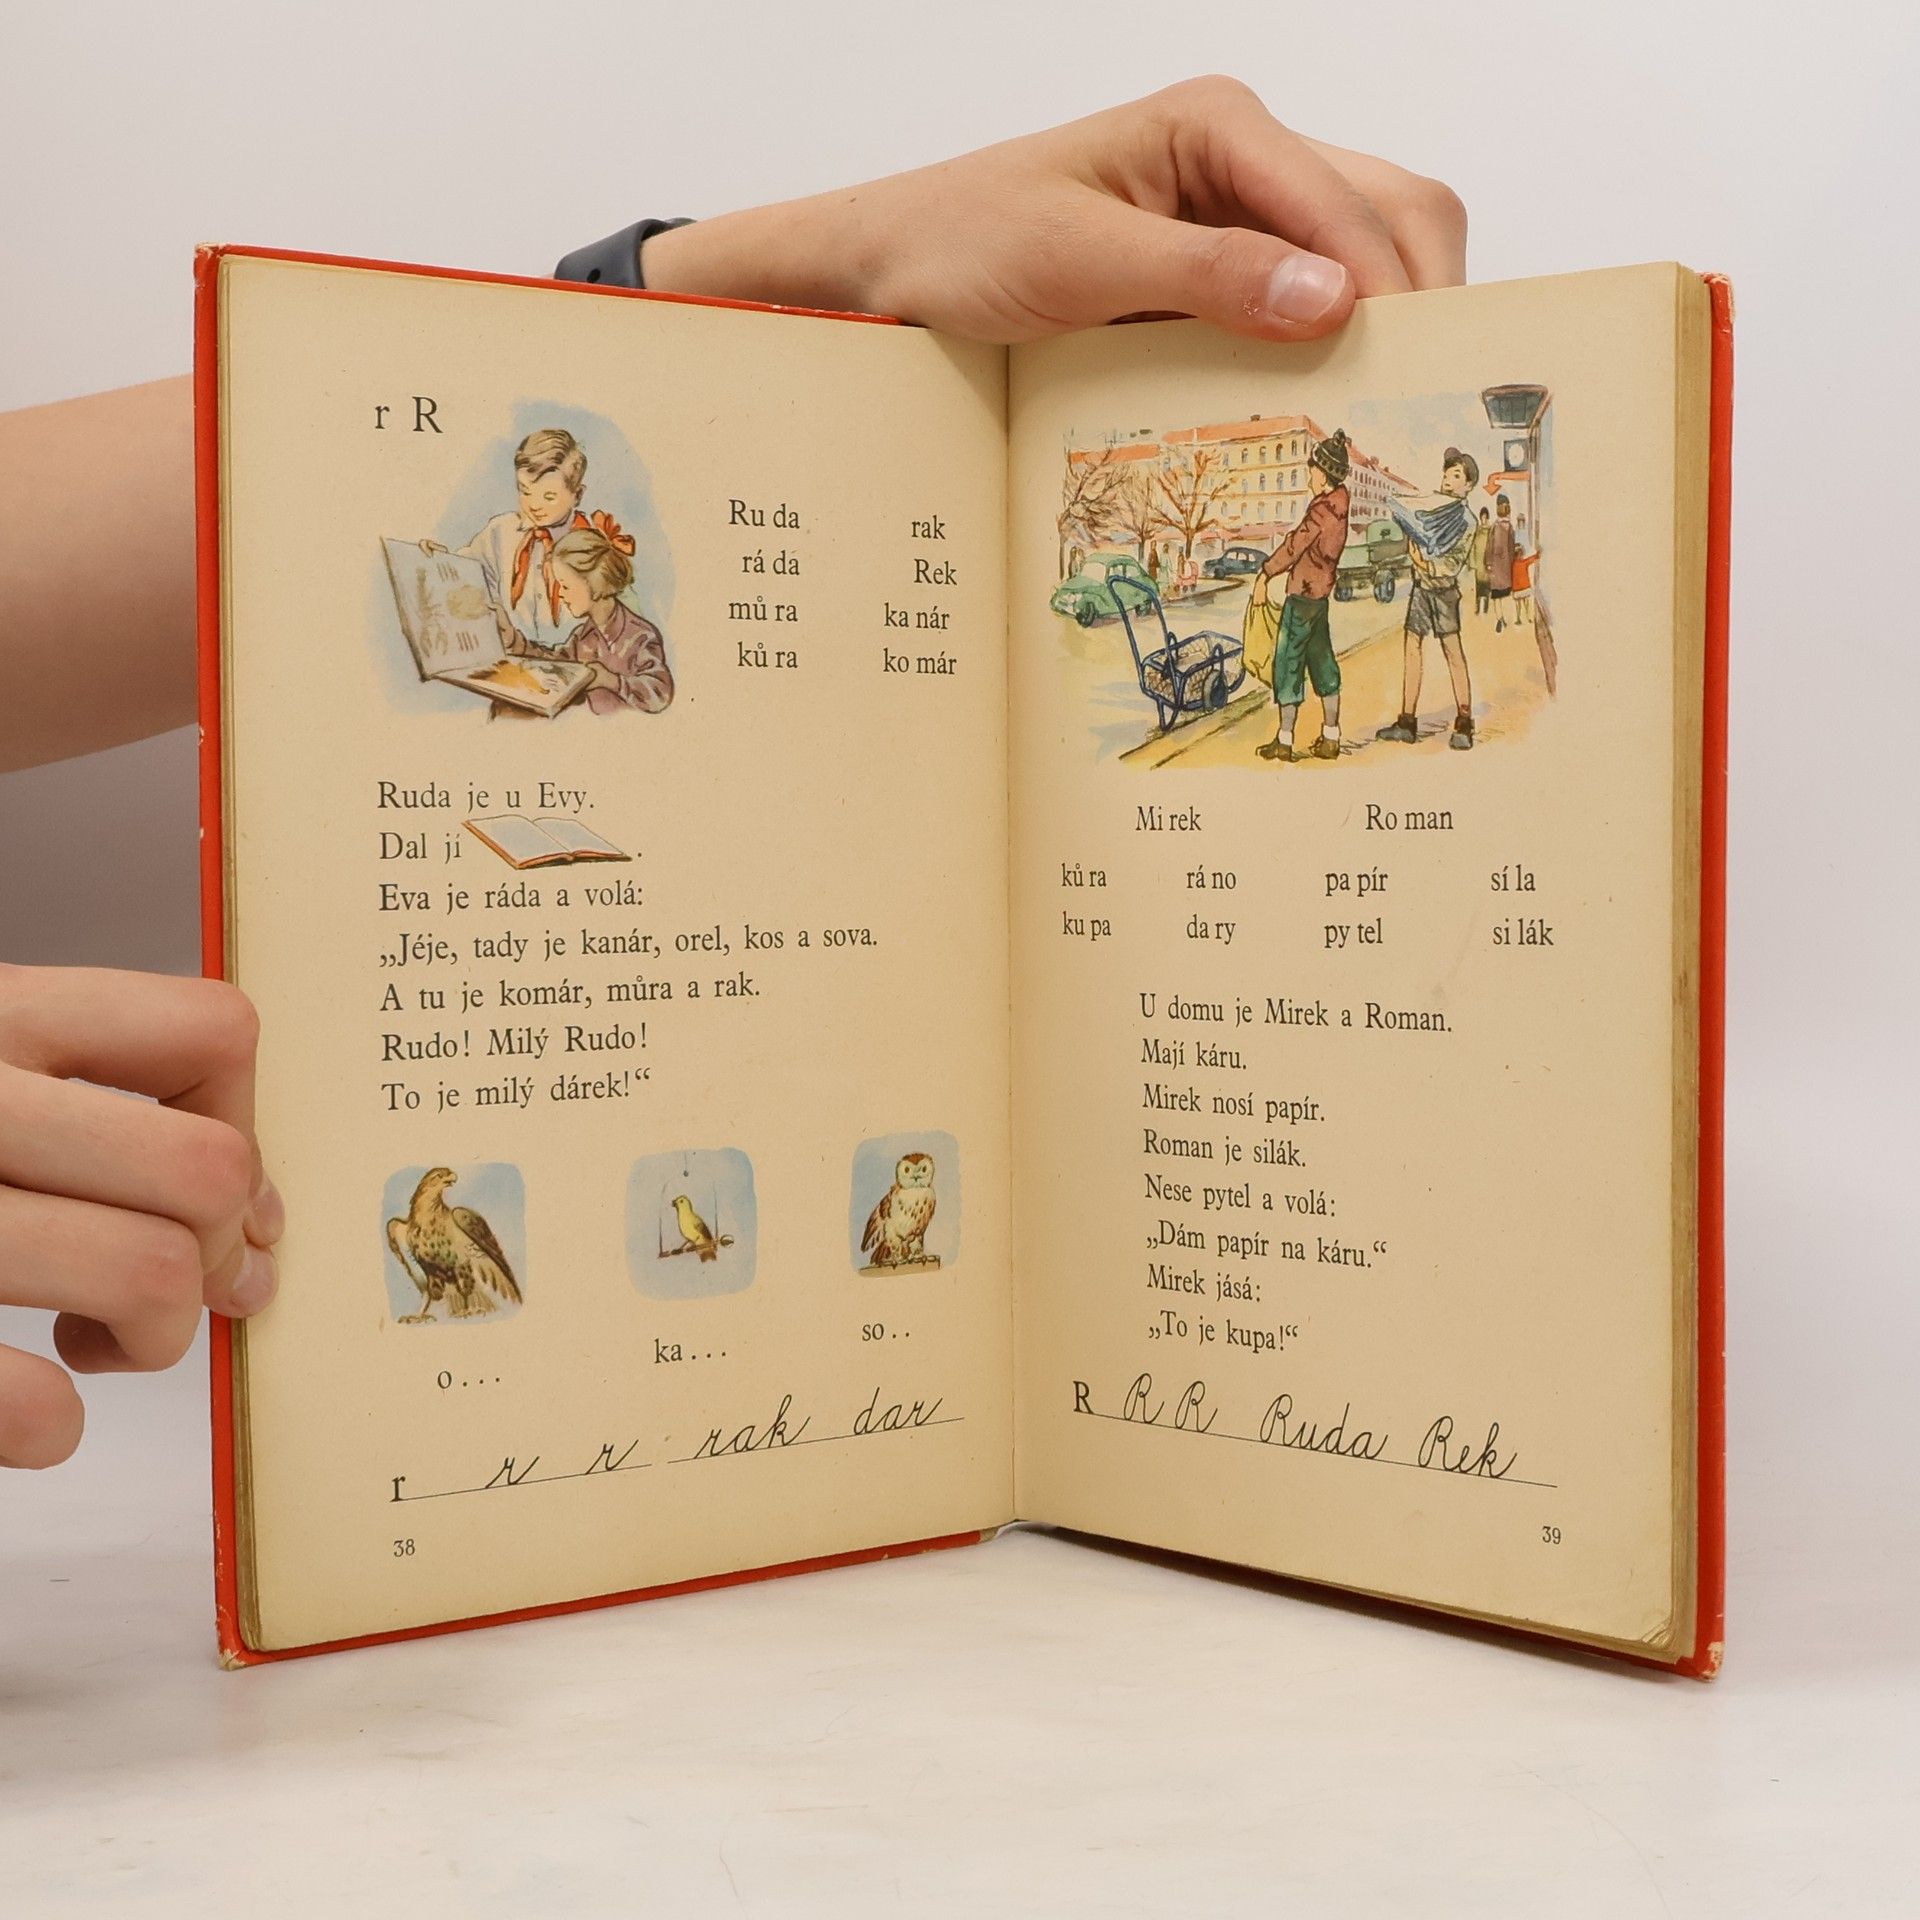 r R
Ru da rak
rá da Rek
mů ra ka nár
ků ra ko már
Ruda je u Evy.
Dal jí .
Eva je ráda a volá:
„Jéje, tady je kanár, orel, kos a sova.
A tu je komár, můra a rak.
Rudo! Milý Rudo!
To je milý dárek!“
o... ka... so..
r r r rak dar
38
Mi rek Ro man
ků ra rá no pa pír sí la
ku pa da ry py tel si lák
U domu je Mirek a Roman.
Mají káru.
Mirek nosí papír.
Roman je silák.
Nese pytel a volá:
„Dám papír na káru.“
Mirek jásá:
„To je kupa!“
R R R Ruda Rek
39